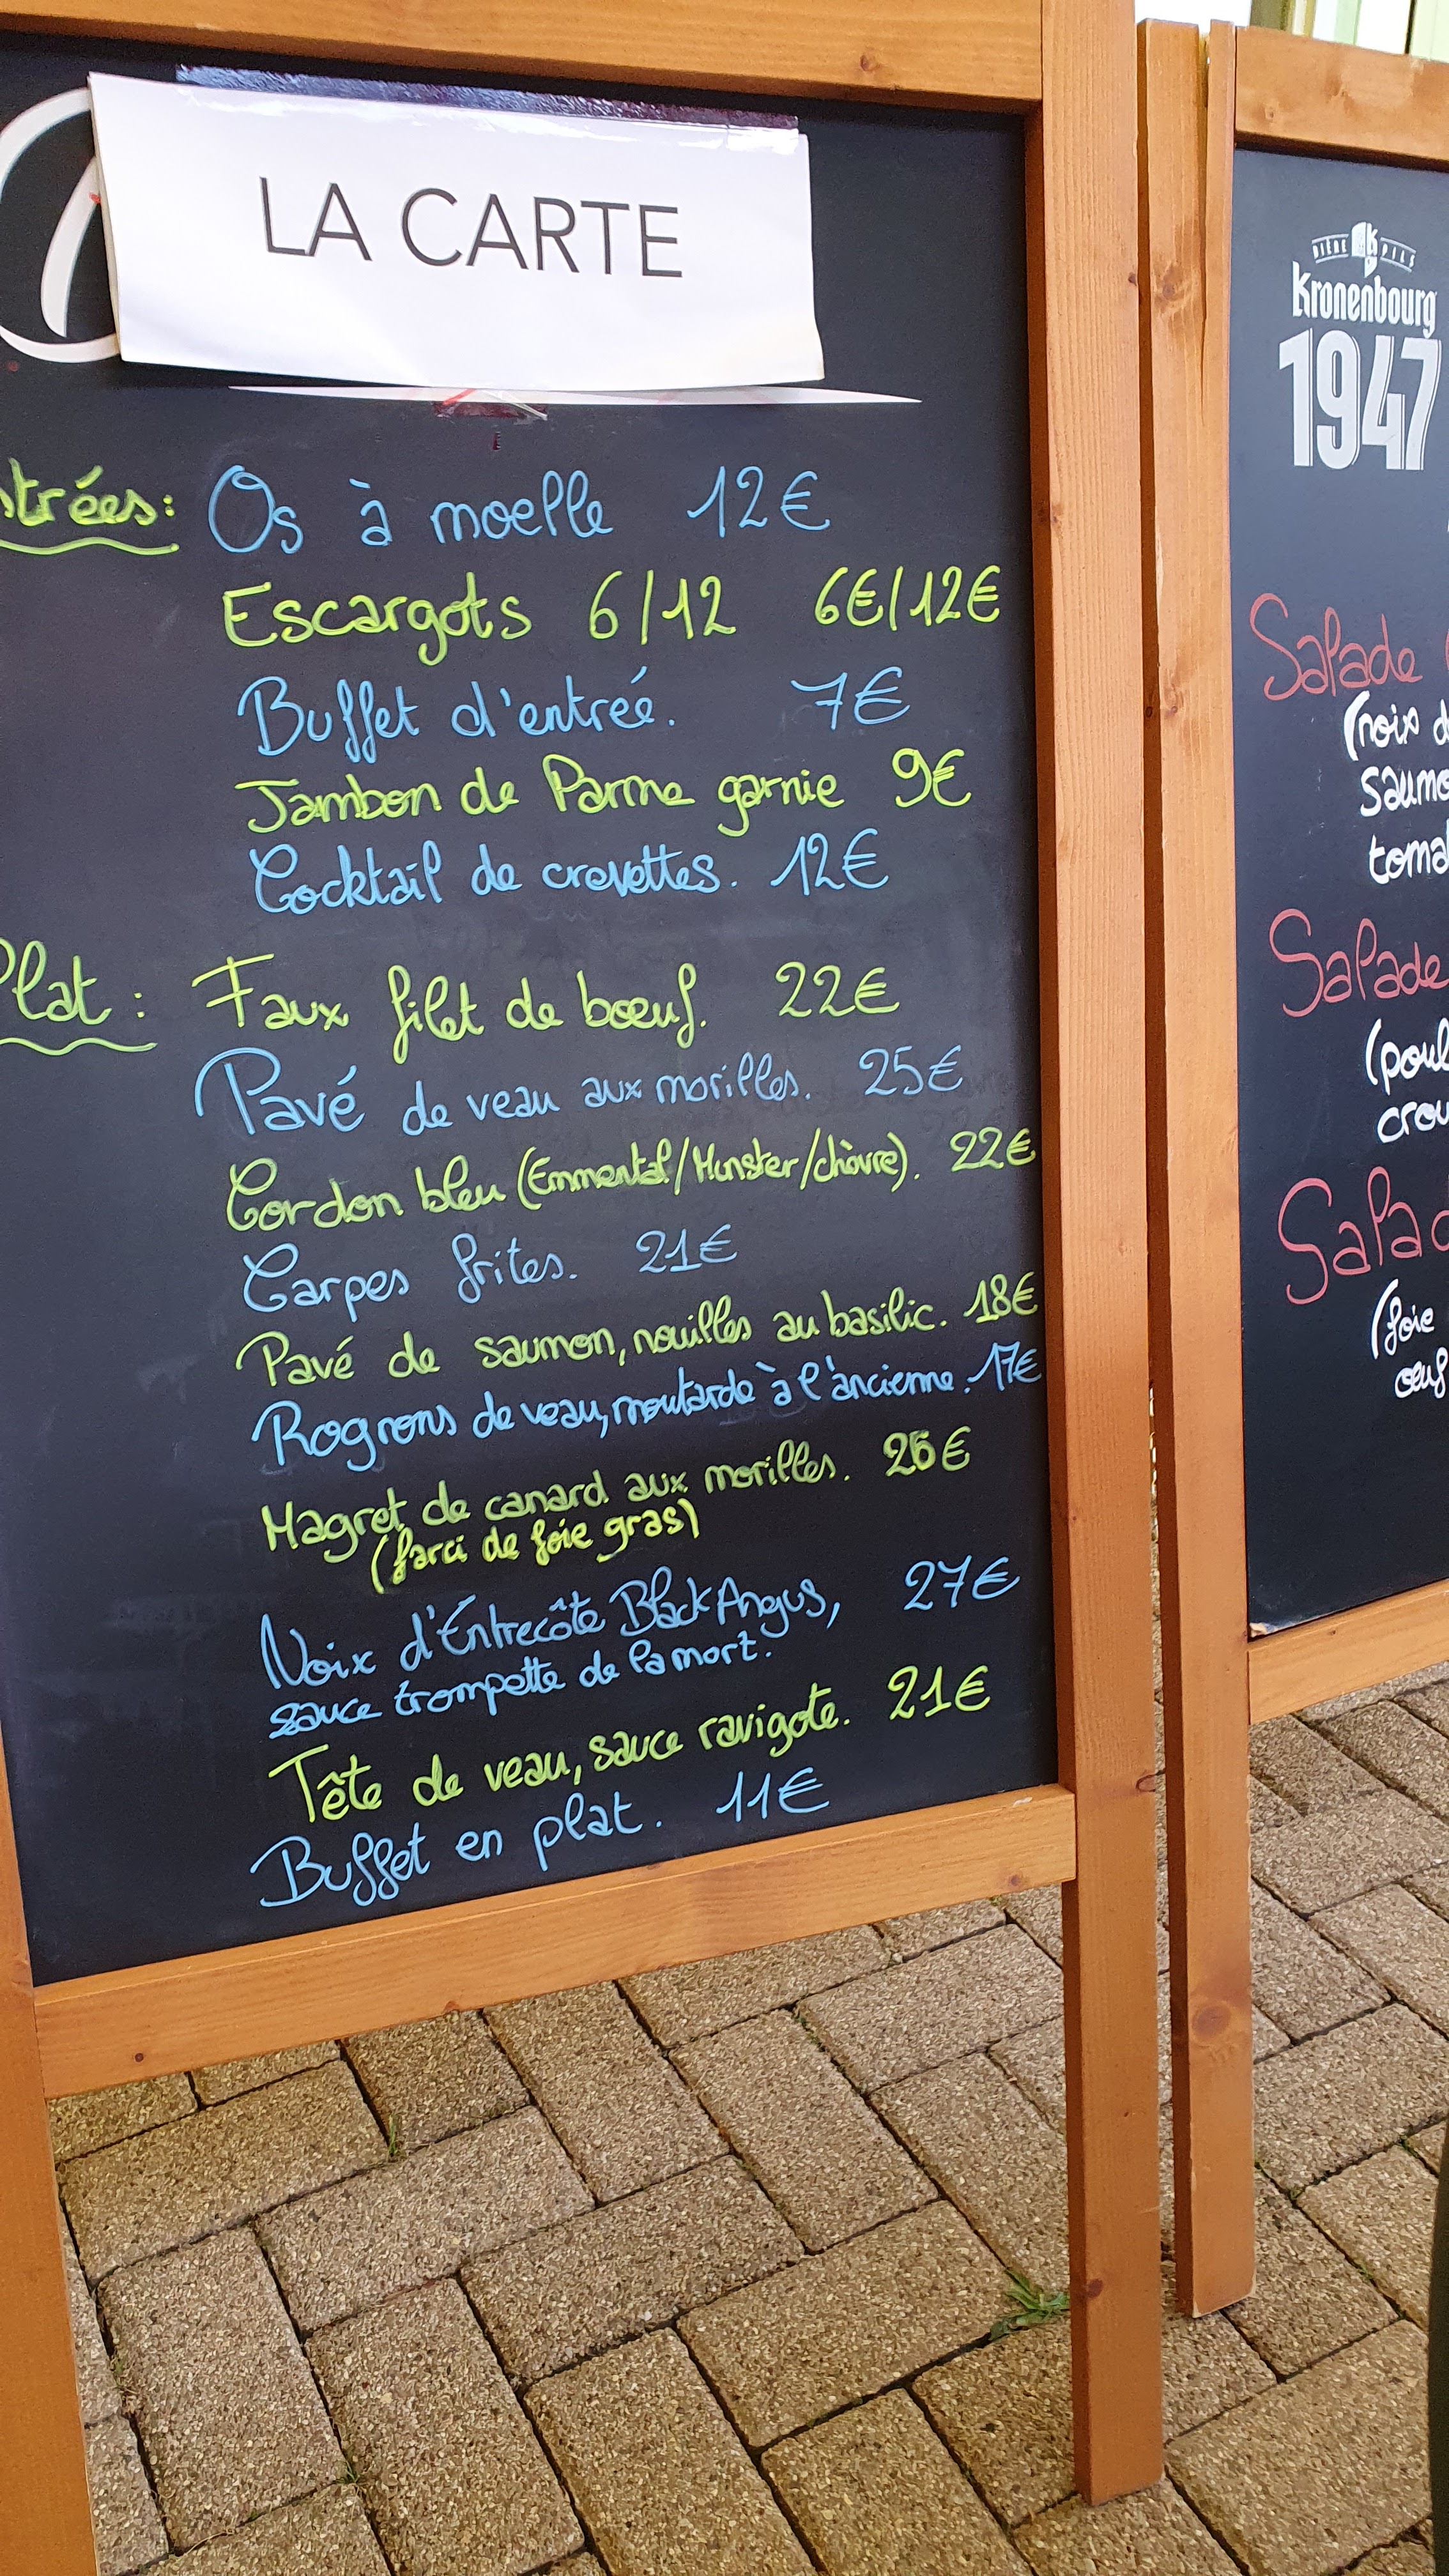 LA CARTE
Os à moelle 12€
Escargots 6/12 6€/12€
Buffet d'entrée. 7€
Jambon de Parme garnie 9€
Cocktail de crevettes. 12€
Plat :
Faux filet de bœuf. 22€
Pavé de veau aux morilles. 25€
Cordon bleu (Emmental/Munster/chèvre). 22€
Carpes frites. 21€
Pavé de saumon, nouilles au basilic. 18€
Rognons de veau, moutarde à l'ancienne. 17€
Magret de canard aux morilles. 26€
(farci de foie gras)
Noix d'Entrecôte Black Angus, 27€
sauce trompette de la mort.
Tête de veau, sauce ravigote. 21€
Buffet en plat. 11€
BIÈRE PILS
Kronenbourg
1947
Salade
(noix d
Salade
Salad
(foie